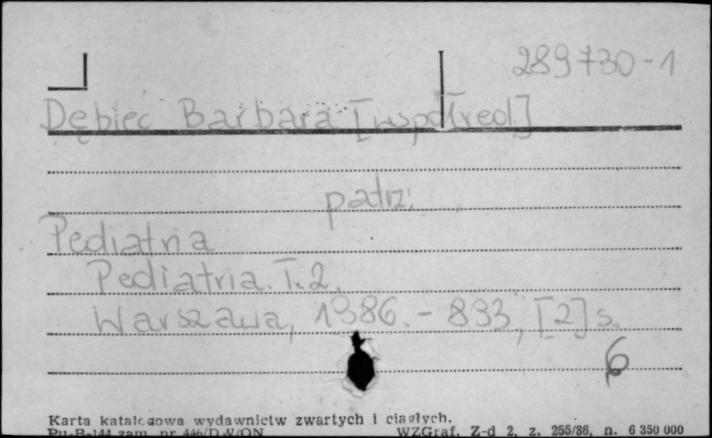 289730-1
Dębiec Barbara [współred]
patrz:
Pediatria
Pediatria. T. 2.
Warszawa, 1986. - 893, [2] s.
6
Karta katalogowa wydawnictw zwartych i ciągłych.
Pu-B-144 zam. nr 446/D.W/ON WZGraf. Z-d 2, z. 255/86, n. 6 350 000